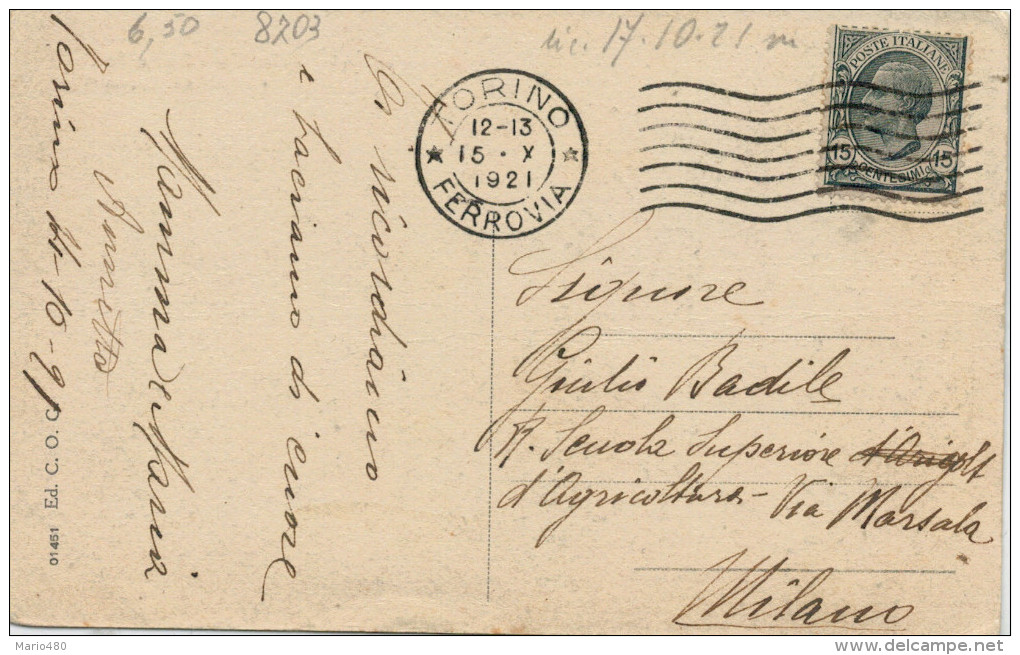 6,50 8203
ric. 17.10.21 m
TORINO
12-13
15 · X
1921
FERROVIA
POSTE ITALIANE
15 15
CENTESIMI
Vi ricordiamo
e baciamo di cuore
Mamma e Maria
Annetta
Torino 14-10-921
Signore
Giulio Badile
R. Scuola Superiore
d'Agricoltura - Via Marsala
Milano
01451 Ed. C. O. G.
Mario480
delcampe.net